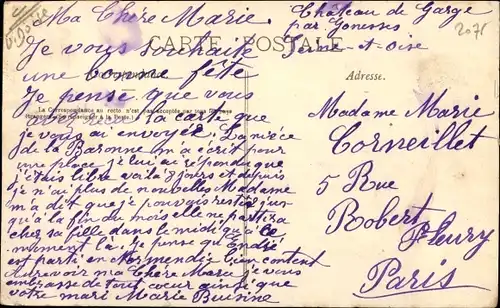 Ma Chère Marie.
Je vous souhaite
une bonne fête
Je pense que vous
la carte que
je vous ai envoyez. La nièce
de la Baronne m'a écrit pour
une place je lui ai répondu que
j'étais libre voila 3 jours et depuis
je n'ai plus de nouvelles Madame
m'a dit que je pouvais rester jus-
qu'à la fin du mois elle ne partira
chez sa fille dans le midi qu'à ce
moment là. Je pense que André
est parti en Normandie bien content
Au revoir ma Chère Marie je vous
embrasse de tout cœur ainsi que
votre mari Marie Buisine
Château de Garge
par Gonesses
Seine-et-Oise
2075
CARTE POSTALE
Correspondance
La Correspondance au recto n'est pas acceptée par tous les pays
(se renseigner à la Poste.)
Adresse.
Madame Marie
Corneillet
5 Rue
Robert
Fleury
Paris